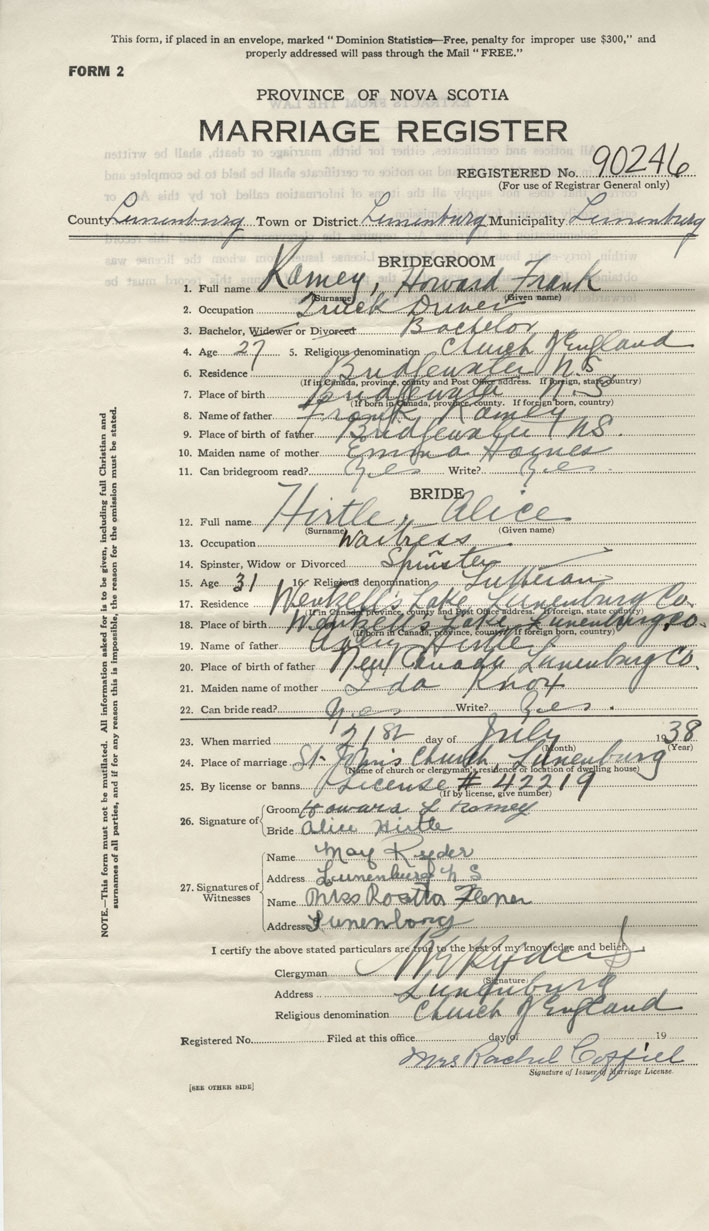 This form, if placed in an envelope, marked "Dominion Statistics—Free, penalty for improper use $300," and
properly addressed will pass through the Mail "FREE."
FORM 2
PROVINCE OF NOVA SCOTIA
MARRIAGE REGISTER
REGISTERED No. 90246
(For use of Registrar General only)
County Lunenburg Town or District Lunenburg Municipality Lunenburg
BRIDEGROOM
1. Full name Ramey, Howard Frank
(Surname) (Given name)
2. Occupation Truck Driver
3. Bachelor, Widower or Divorced Bachelor
4. Age 27 5. Religious denomination Church of England
6. Residence Bridgewater N.S
(If in Canada, province, county and Post Office address. If foreign, state country)
7. Place of birth Bridgewater N.S
(If born in Canada, province, county. If foreign born, country)
8. Name of father Frank Ramey
9. Place of birth of father Bridgewater N.S.
10. Maiden name of mother Emma Haynes
11. Can bridegroom read? Yes Write? Yes
BRIDE
12. Full name Hirtle, Alice
(Surname) (Given name)
13. Occupation Waitress
14. Spinster, Widow or Divorced Spinster
15. Age 31 16. Religious denomination Lutheran
17. Residence Wenkell's Lake Lunenburg Co.
(If in Canada, province, county and Post Office address. If foreign, state country)
18. Place of birth Wenkell's Lake, Lunenburg Co.
(If born in Canada, province, county. If foreign born, country)
19. Name of father Hirtle
20. Place of birth of father New Canada Lunenburg Co.
21. Maiden name of mother Ida Knox
22. Can bride read? Yes Write? Yes.
23. When married 21st day of July 1938
(Month) (Year)
24. Place of marriage St. John's Church, Lunenburg
(Name of church or clergyman's residence or location of dwelling house)
25. By license or banns License # 42219
(If by license, give number)
26. Signature of Groom Howard F Ramey
Bride Alice Hirtle
27. Signatures of Witnesses
Name May Ryder
Address Lunenburg N S
Name Miss Rosetta
Address Lunenburg
I certify the above stated particulars are true to the best of my knowledge and belief.
Clergyman Ryder
(Signature)
Address Lunenburg
Religious denomination Church of England
Registered No. Filed at this office day of 19
Mrs Rachel
Signature of Issuer of Marriage License.
[SEE OTHER SIDE]
NOTE.—This form must not be mutilated. All information asked for is to be given, including full Christian and
surnames of all parties, and if for any reason this is impossible, the reason for the omission must be stated.